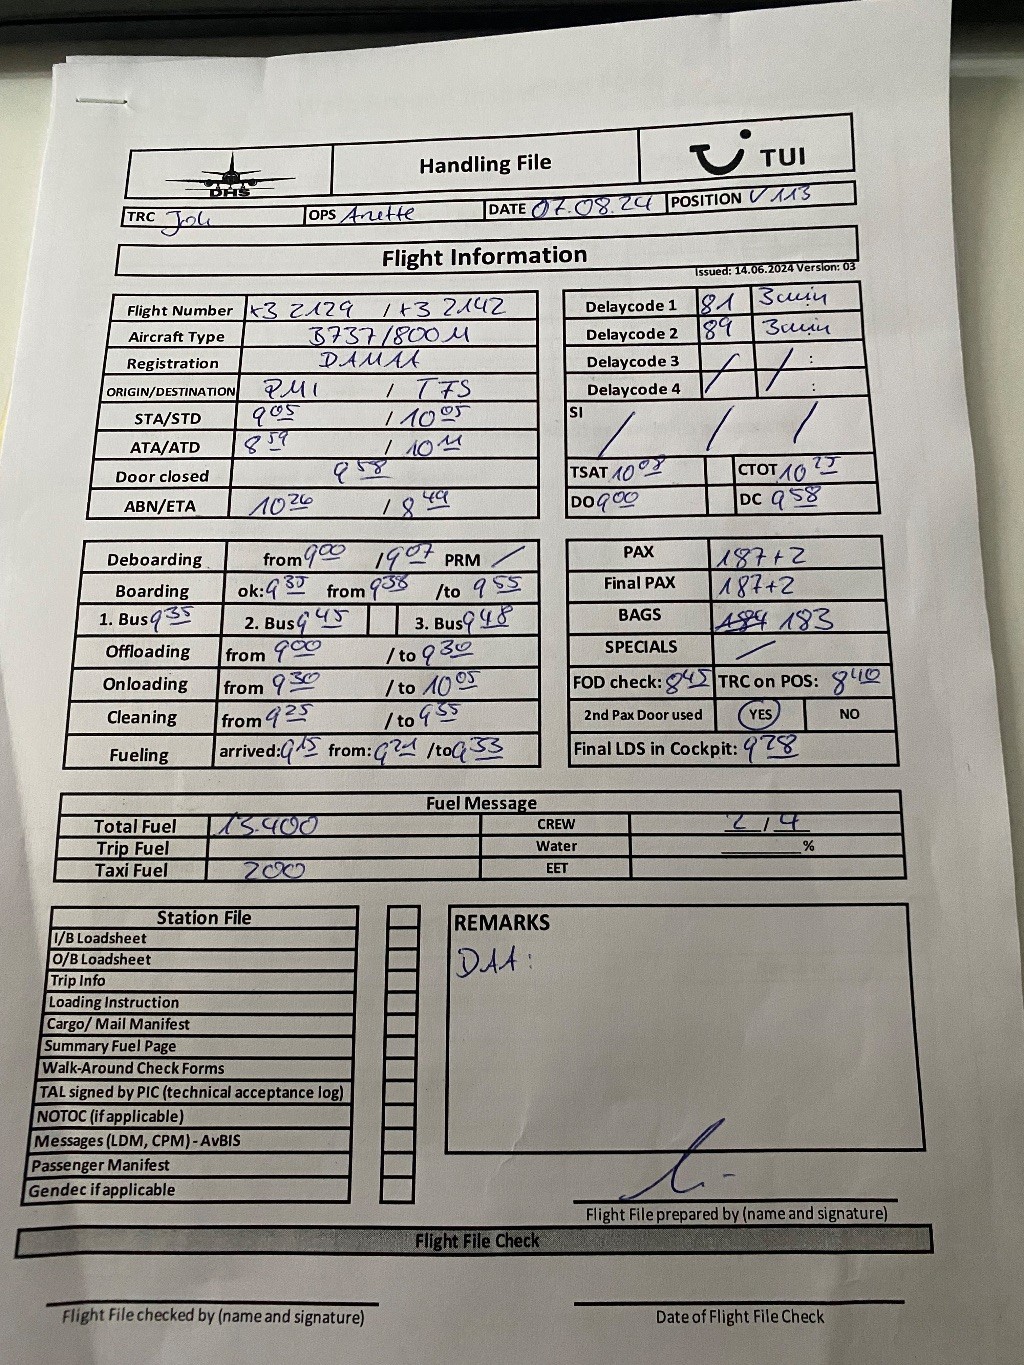 DHS Handling File TUI
TRC Joh OPS Anette DATE 07.08.24 POSITION V 113
Flight Information
Issued: 14.06.2024 Version: 03
Flight Number X3 2129 / X3 2142
Aircraft Type B737/800M
Registration DAMAA
ORIGIN/DESTINATION PMI / TFS
STA/STD 9 05 / 10 05
ATA/ATD 8 59 / 10 11
Door closed 9 58
ABN/ETA 10 26 / 8 49
Delaycode 1 81 3min
Delaycode 2 89 3min
Delaycode 3 / / :
Delaycode 4 :
SI / / /
TSAT 10 08 CTOT 10 25
DO 9 00 DC 9 58
Deboarding from 9 00 / 9 07 PRM /
Boarding ok: 9 35 from 9 38 /to 9 55
1. Bus 9 35 2. Bus 9 45 3. Bus 9 48
Offloading from 9 00 / to 9 30
Onloading from 9 30 / to 10 05
Cleaning from 9 25 / to 9 35
Fueling arrived: 9 15 from: 9 21 /to 9 33
PAX 187+2
Final PAX 187+2
BAGS 184 183
SPECIALS /
FOD check: 8 45 TRC on POS: 8 40
2nd Pax Door used YES NO
Final LDS in Cockpit: 9 28
Fuel Message
Total Fuel 13.400 CREW 2 / 4
Trip Fuel Water %
Taxi Fuel 200 EET
Station File
I/B Loadsheet
O/B Loadsheet
Trip Info
Loading Instruction
Cargo/ Mail Manifest
Summary Fuel Page
Walk-Around Check Forms
TAL signed by PIC (technical acceptance log)
NOTOC (if applicable)
Messages (LDM, CPM) - AvBIS
Passenger Manifest
Gendec if applicable
REMARKS
DAA:
Flight File prepared by (name and signature)
Flight File Check
Flight File checked by (name and signature) Date of Flight File Check